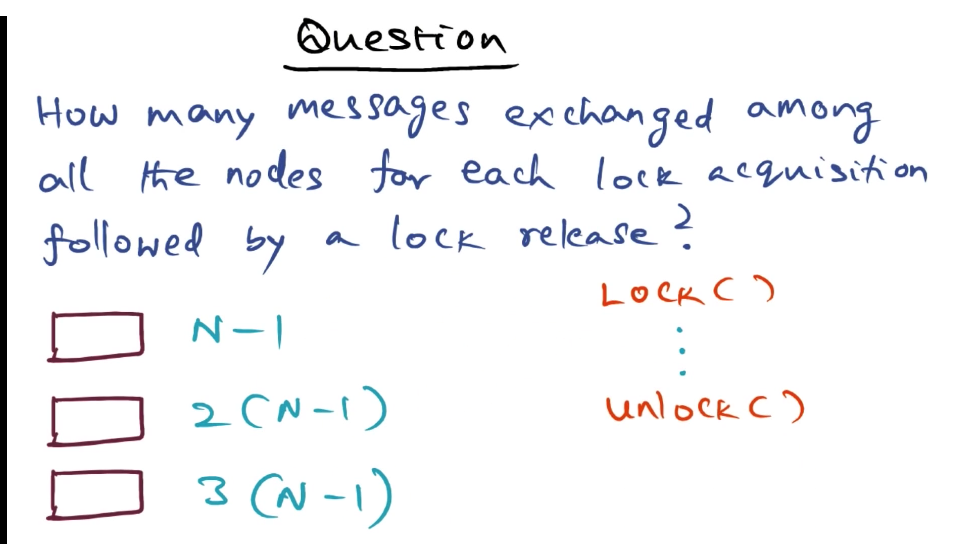 Question
How many messages exchanged among
all the nodes for each lock acquisition
followed by a lock release?
LOCK ( )
N-1
2 (N-1)
unlock ( )
3 (N-1)